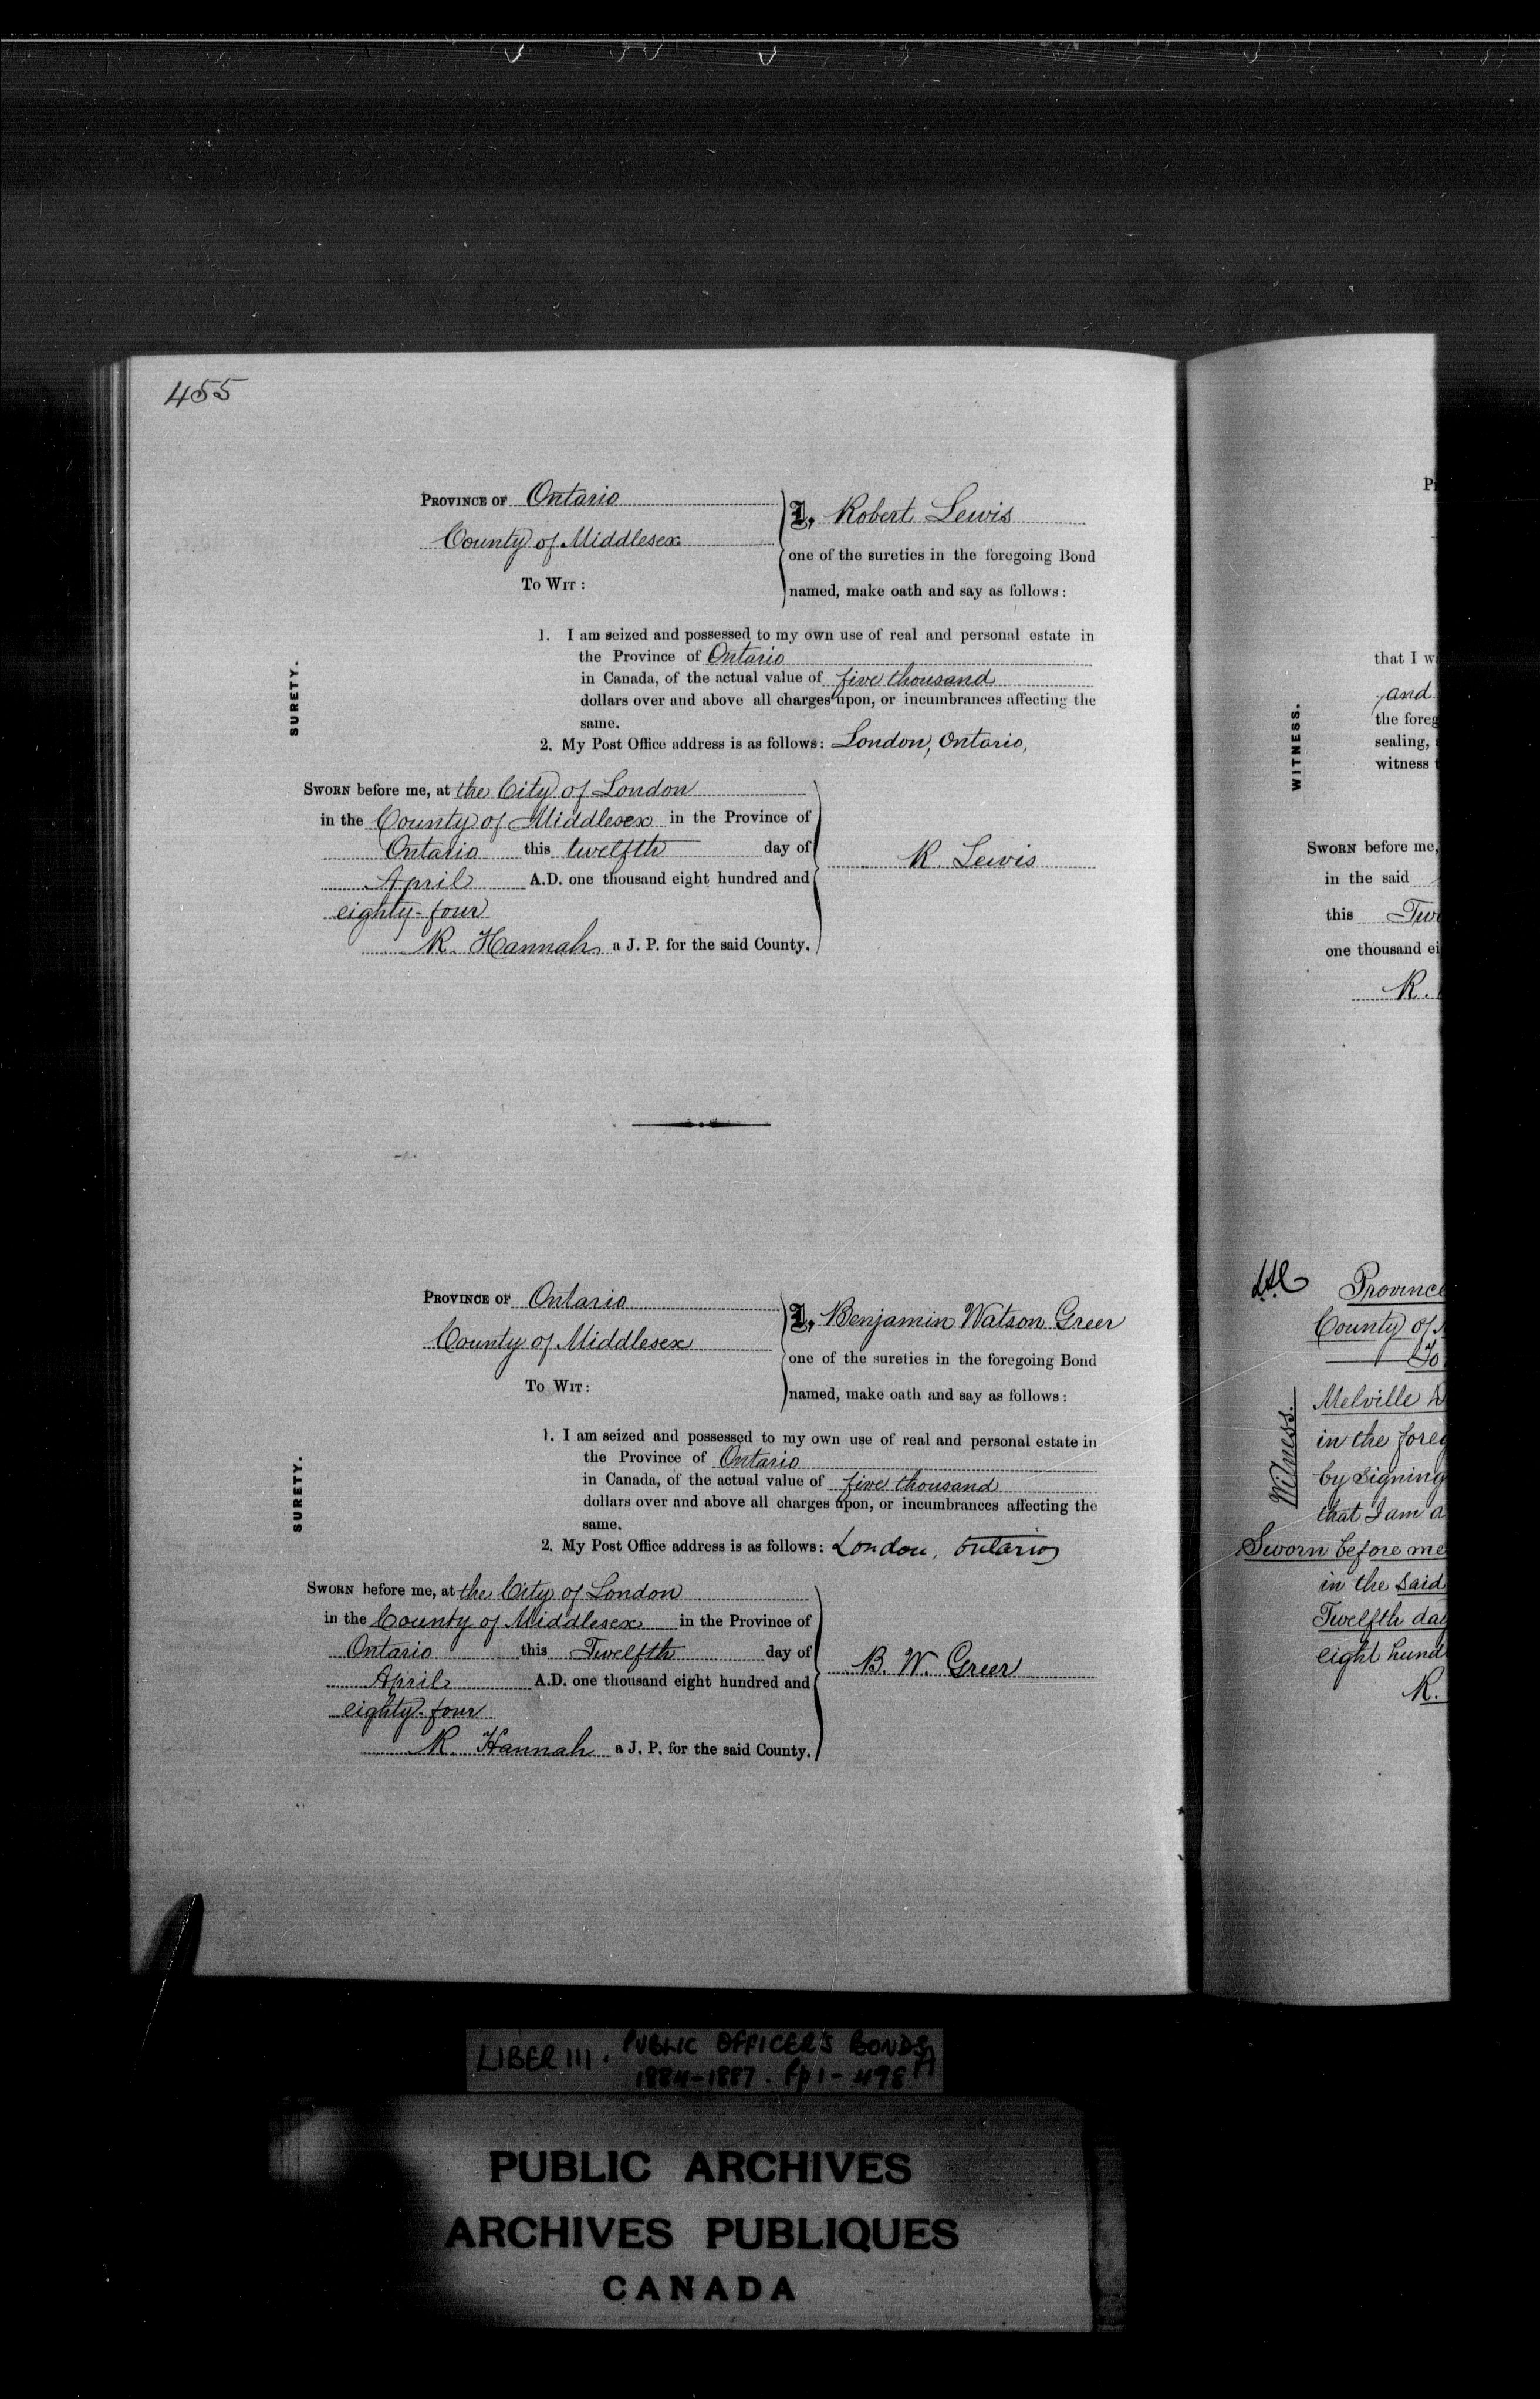 455
PROVINCE OF Ontario
County of Middlesex
TO WIT:
I, Robert Lewis
one of the sureties in the foregoing Bond
named, make oath and say as follows:
SURETY.
1. I am seized and possessed to my own use of real and personal estate in
the Province of Ontario
in Canada, of the actual value of five thousand
dollars over and above all charges upon, or incumbrances affecting the
same.
2. My Post Office address is as follows: London, Ontario,
SWORN before me, at the City of London
in the County of Middlesex in the Province of
Ontario this twelfth day of
April A.D. one thousand eight hundred and
eighty-four
R. Hannah a J. P. for the said County.
R. Lewis
PROVINCE OF Ontario
County of Middlesex
TO WIT:
I, Benjamin Watson Greer
one of the sureties in the foregoing Bond
named, make oath and say as follows:
SURETY.
1. I am seized and possessed to my own use of real and personal estate in
the Province of Ontario
in Canada, of the actual value of five thousand
dollars over and above all charges upon, or incumbrances affecting the
same.
2. My Post Office address is as follows: London, Ontario
SWORN before me, at the City of London
in the County of Middlesex in the Province of
Ontario this Twelfth day of
April A.D. one thousand eight hundred and
eighty-four
R. Hannah a J. P. for the said County.
B. W. Greer
that I
and
the
sealing,
witness
WITNESS.
SWORN before me,
in the said
this
one thousand
R.
Province
County of
To
Melville
in the
by signing
that I am
Witness.
Sworn before me
in the said
Twelfth
eight
R.
LIBER III. PUBLIC OFFICER'S BONDS
1884-1887. pp 1-498
PUBLIC ARCHIVES
ARCHIVES PUBLIQUES
CANADA